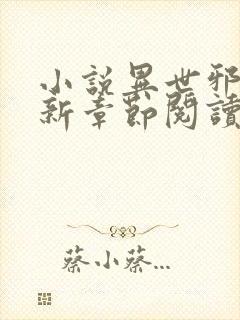 小說異世邪
新章節閱讀
蔡小蔡...